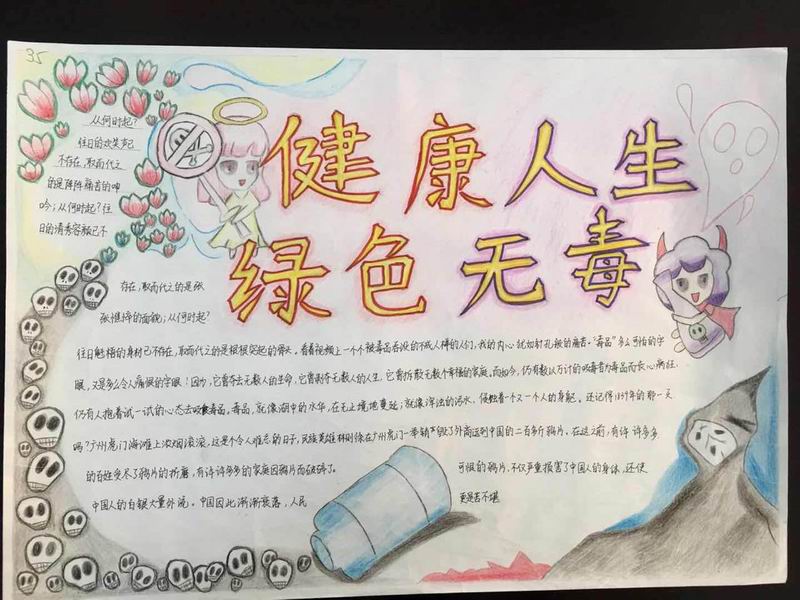 35
健康人生
绿色无毒
从何时起?
往日的欢笑声已
不存在,取而代之
的是阵阵痛苦的呻
吟;从何时起?往
日的清秀容颜已不
存在,取而代之的是张
张憔悴的面貌;从何时起?
往日魁梧的身材已不存在,取而代之的是根根突起的骨头。看着视频上一个个被毒品吞没的不成人样的人们,我的内心犹如针扎般的痛苦。"毒品"多么可怕的字
眼,又是多么令人痛恨的字眼!因为,它曾夺去无数人的生命,它曾剥夺无数人的人生,它曾拆散无数个幸福的家庭。而如今,仍有数以万计的吸毒者为毒品而丧心病狂,
仍有人抱着试一试的心态去吸食毒品。毒品,就像湖中的水华,在无止境地蔓延;就像浑浊的污水,侵蚀着一个又一个人的身躯。还记得1839年的那一天
吗?广州虎门海滩上浓烟滚滚,这是个令人难忘的日子,民族英雄林则徐在广州虎门一举销毁了外商运到中国的二百多斤鸦片。在这之前,有许许多多
的百姓受尽了鸦片的折磨,有许许多多的家庭因鸦片而破碎了。
可恨的鸦片,不仅严重损害了中国人的身体,还使
中国人的白银大量外流。中国因此渐渐衰落,人民
更是苦不堪